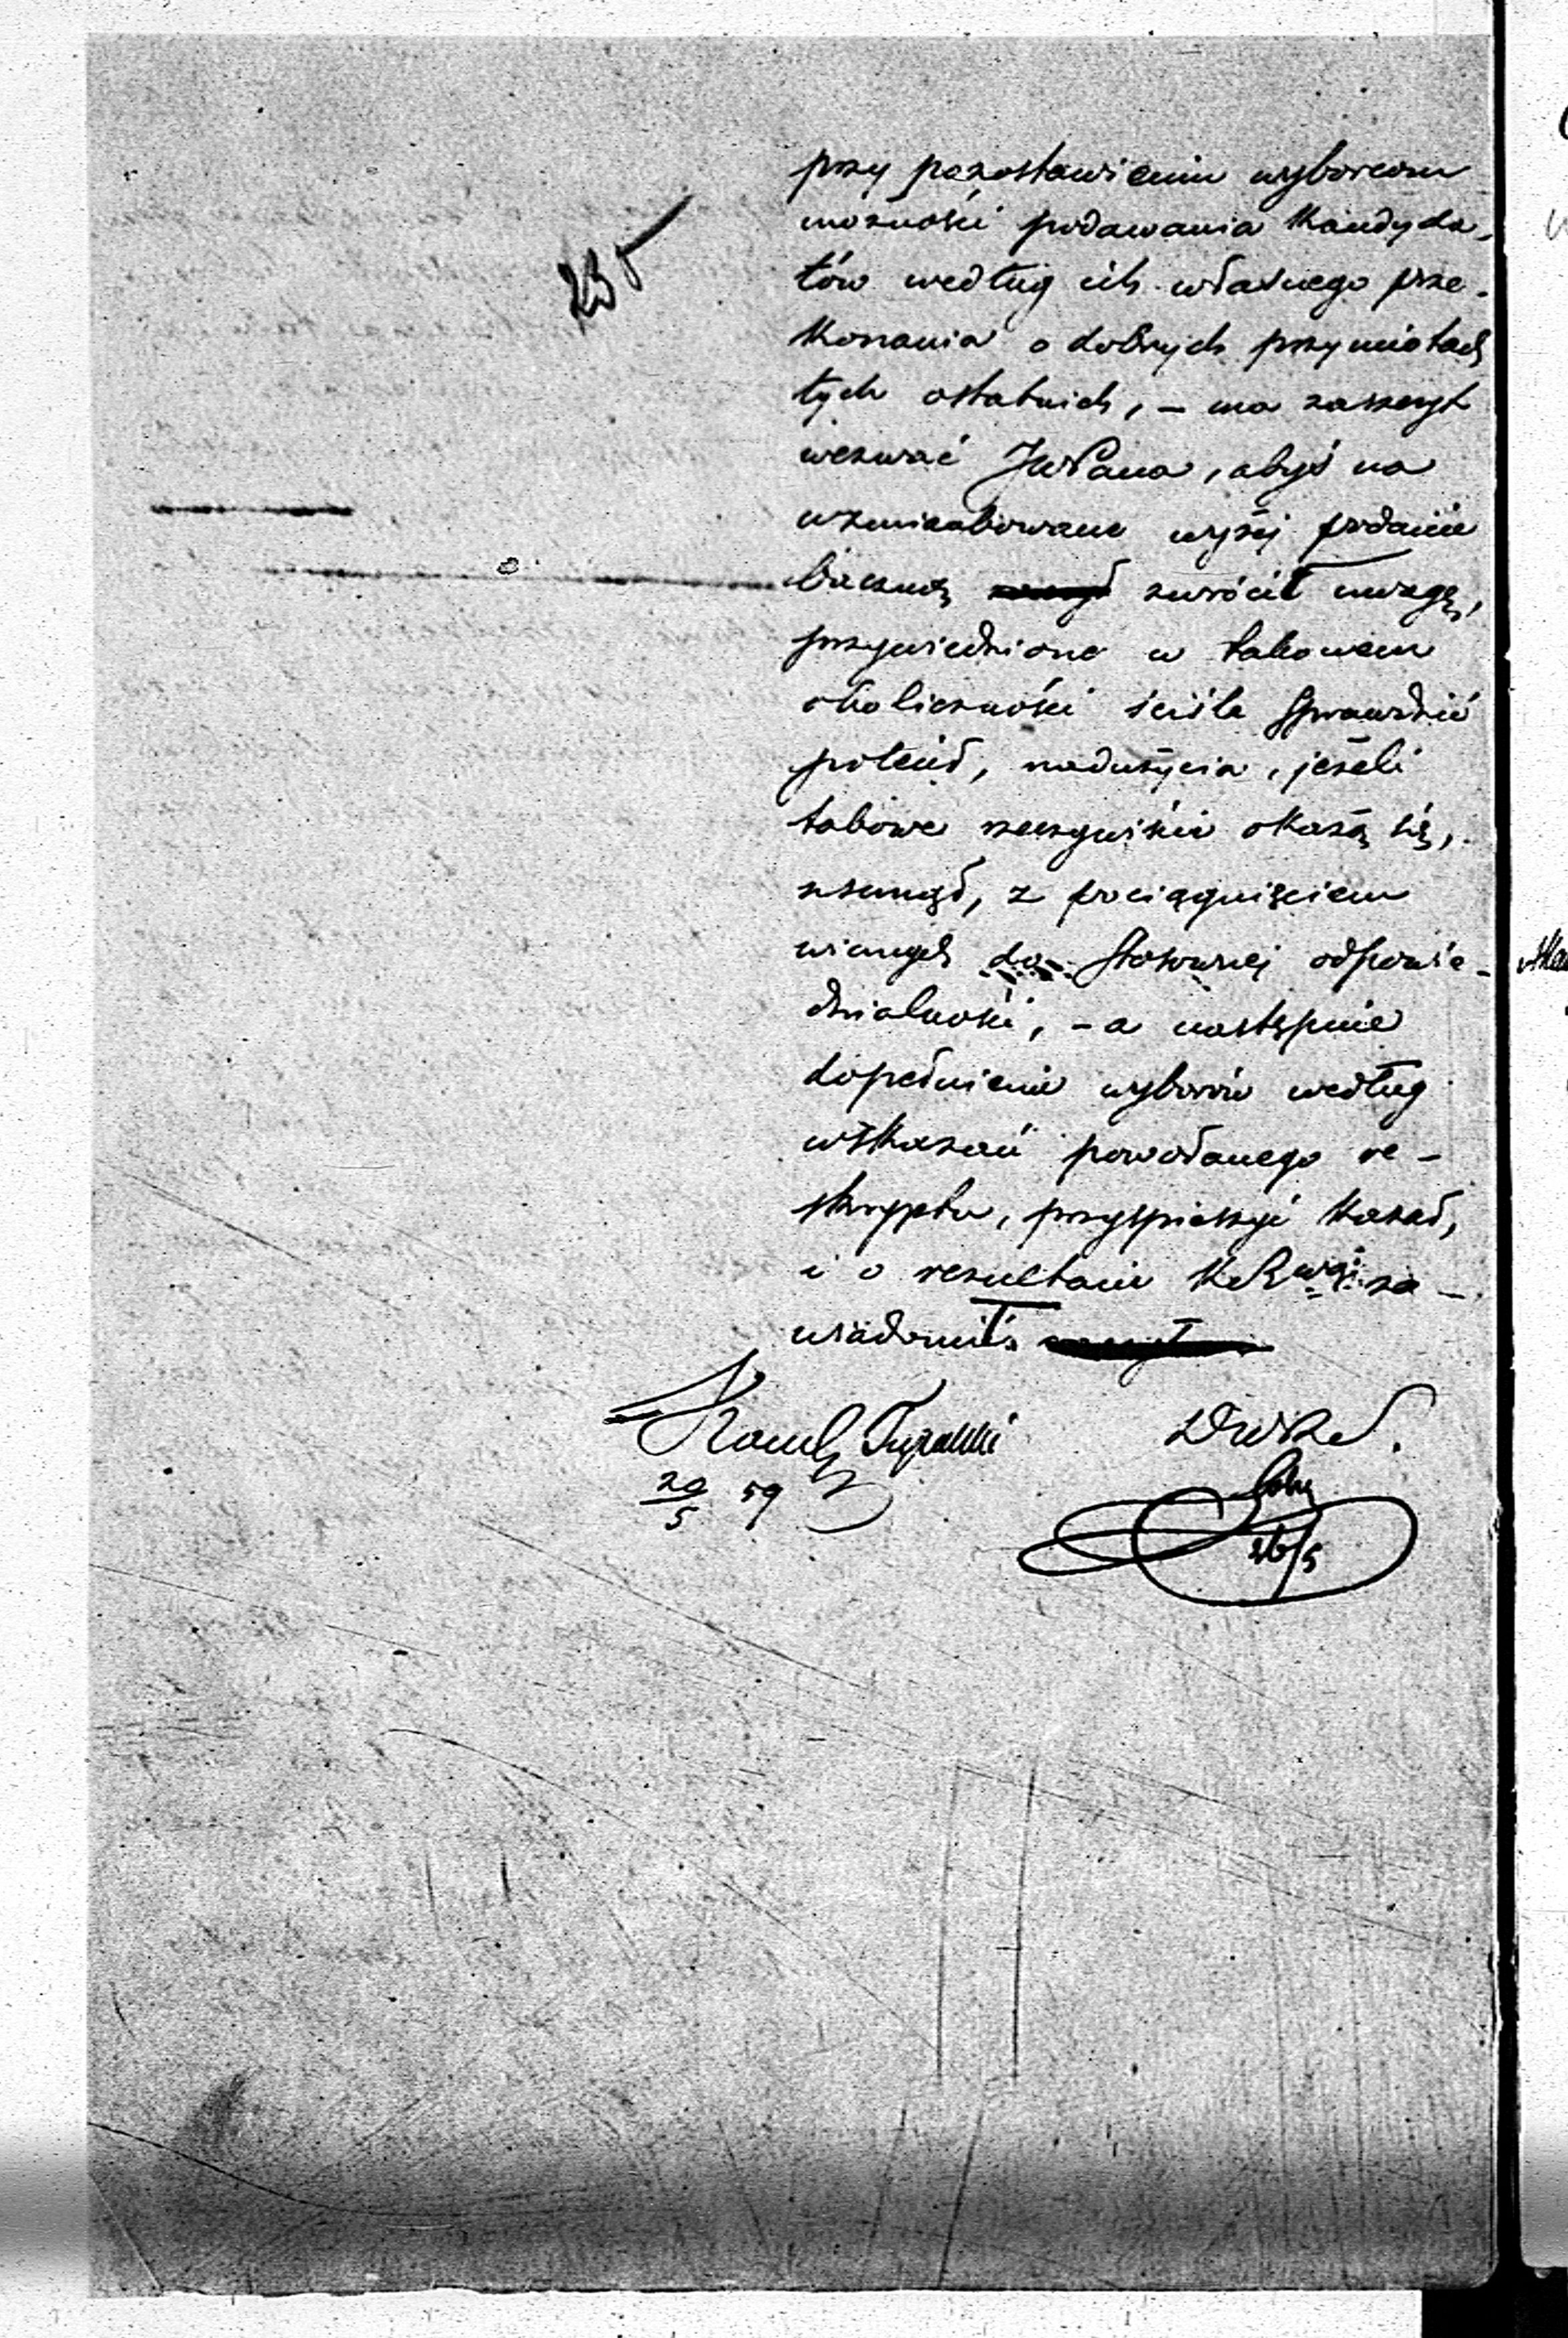 235
przy pozostawieniu wyborcom
możności podawania Kandyda-
tów według ich własnego prze-
konania o dobrych przymiotach
tych ostatnich, – ma zaszczyt
wezwać JWPana, abyś na
wzmiankowane wyżej podanie
baczną zwrócił uwagę,
przywiedzione w takowem
okoliczności ściśle sprawdzić
polecił, nadużycia, jeżeli
takowe rzeczywiście okażą się,
usunął, z pociągnięciem
winnych do stosownej odpowie-
dzialności, – a następnie
dopełnienie wyborów według
wskazań powołanego re-
skryptu, przyspieszyć kazał,
i o rezultacie KRząd: za-
wiadomił.
20/5 59
26/5